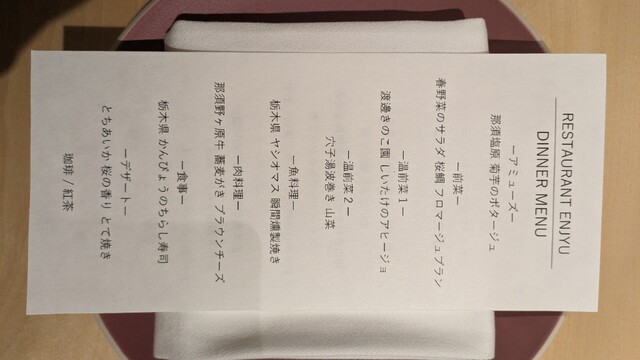 RESTAURANT ENJYU
DINNER MENU
ーアミューズー
那須塩原 菊芋のポタージュ
ー前菜ー
春野菜のサラダ 桜鯛 フロマージュブラン
ー温前菜1ー
渡邊きのこ園 しいたけのアヒージョ
ー温前菜2ー
穴子湯波巻き 山菜
ー魚料理ー
栃木県 ヤシオマス 瞬間燻製焼き
ー肉料理ー
那須野ヶ原牛 蕎麦がき ブラウンチーズ
ー食事ー
栃木県 かんぴょうのちらし寿司
ーデザートー
とちあいか 桜の香り とて焼き
珈琲 / 紅茶